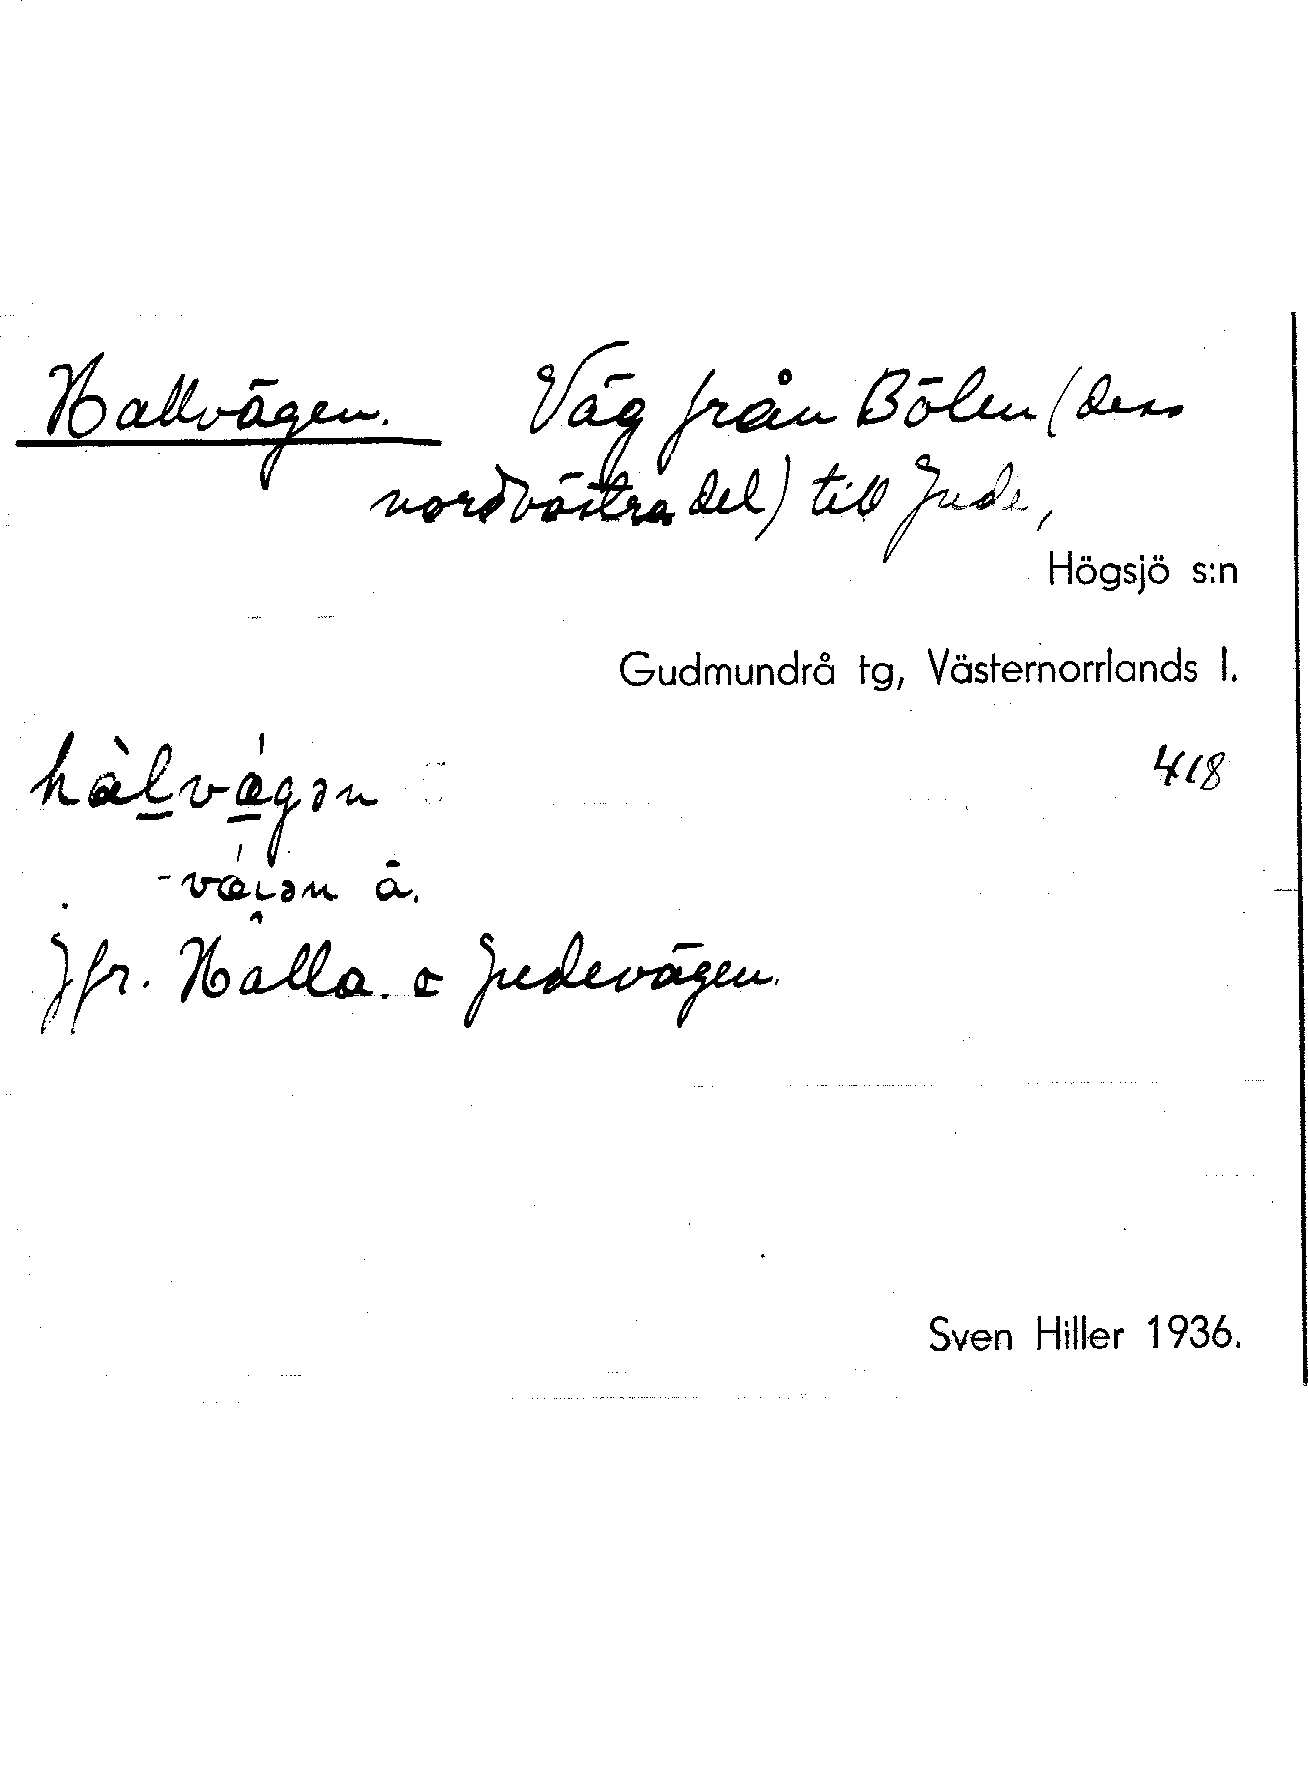 Hallvägen. Väg från Bölen (dess
nordvästra del) till Jude,
Högsjö s:n
Gudmundrå tg, Västernorrlands l.
hàlvǽgən 418
-vǽiən ä.
Jfr. Hälla. o Judevägen.
Sven Hiller 1936.